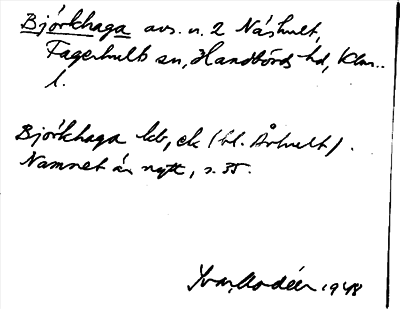 Björkhaga avs. n. 2 Näshult,
Fagerhults sn, Handbörds hd, Klm..
l.
Björkhaga kb, ek (bl. Århult).
Namnet är nytt, s. 35.
Ivar Modéer 1948